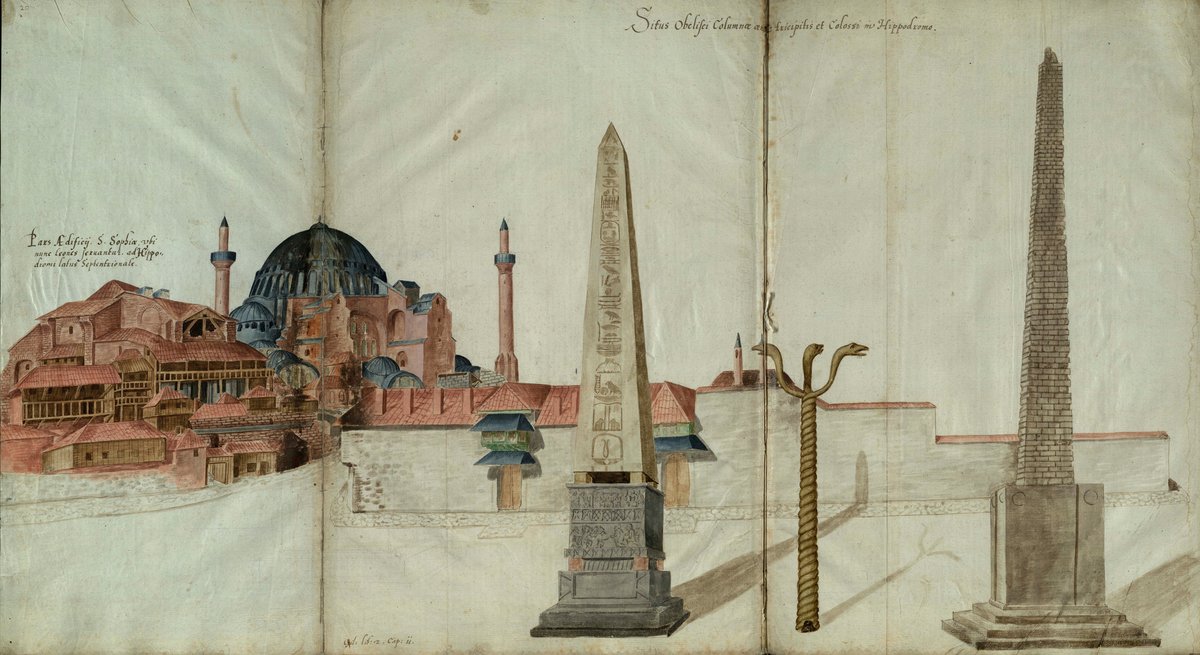 20
Situs Obelisci Columnæ tricipitis et Colossi in Hippodromo.
Pars Ædificij S. Sophiæ, ubi
nunc leones servantur, ad Hippo-
dromi latus Septentrionale.
lib: 2. Cap: 11.